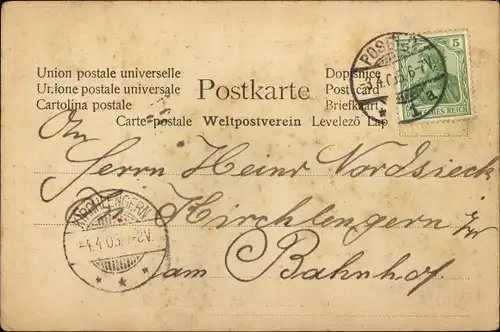 Union postale universelle
Unione postale universale
Cartolina postale
Postkarte
Dopisnice
Post card
Briefkaart
Carte-postale Weltpostverein Levelező Lap
POSEN
4.4.05. 6-7V.
1 a
5
REICH
An
Herrn Heinr Nordsieck
Kirchlengern
am Bahnhof.
KIRCHLENGERN
-4.4.05.